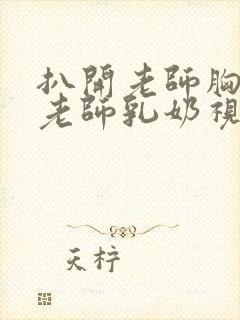 扒開老師胸
老師乳奶視
天梓